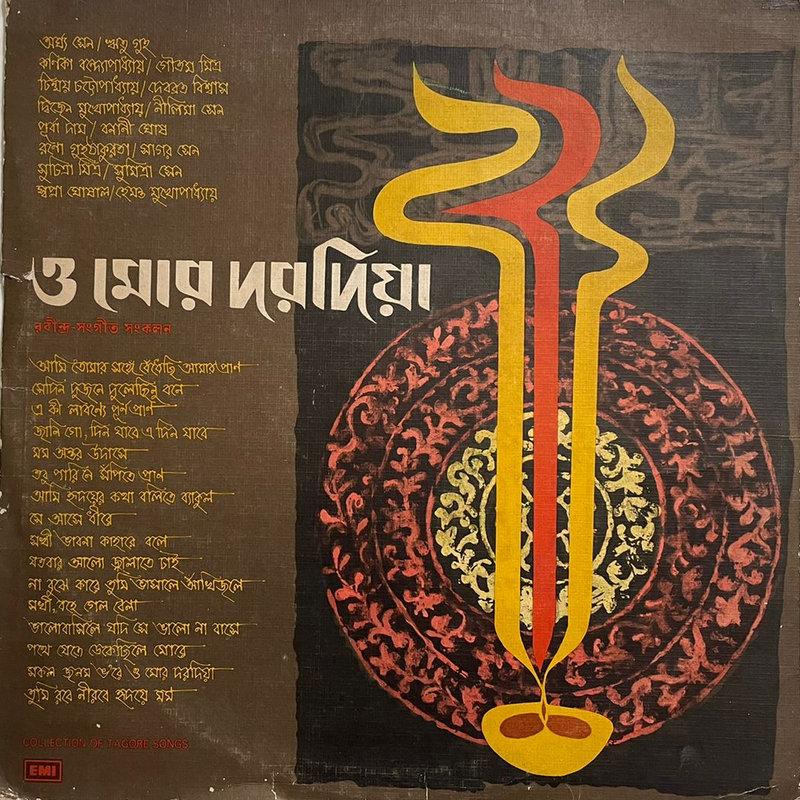 অর্ঘ্য সেন / ঋতু গুহ
কণিকা বন্দ্যোপাধ্যায় / গৌতম মিত্র
চিন্ময় চট্টোপাধ্যায় / দেবব্রত বিশ্বাস
দ্বিজেন মুখোপাধ্যায় / নীলিমা সেন
পূর্বা দাম / বনানী ঘোষ
রনো গুহঠাকুরতা / সাগর সেন
সুচিত্রা মিত্র / সুমিত্রা সেন
স্বপ্না ঘোষাল / হেমন্ত মুখোপাধ্যায়
ও মোর দরদিয়া
রবীন্দ্র-সংগীত সংকলন
আমি তোমার সঙ্গে বেঁধেছি আমার প্রাণ
সেদিন দুজনে দুলেছিনু বনে
এ কী লাবণ্যে পূর্ণ প্রাণ
জানি গো, দিন যাবে এ দিন যাবে
মম অন্তর উদাসে
তবু পারি নে সঁপিতে প্রাণ
আমি হৃদয়ের কথা বলিতে ব্যাকুল
সে আসে ধীরে
সখী ভাবনা কাহারে বলে
যতবার আলো জ্বালাতে চাই
না বুঝে কারে তুমি ভাসালে আঁখিজলে
সখী, বহে গেল বেলা
ভালোবাসিলে যদি সে ভালো না বাসে
পথে যেতে ডেকেছিলে মোরে
সকল জনম ভ'রে ও মোর দরদিয়া
তুমি রবে নীরবে হৃদয়ে মম
COLLECTION OF TAGORE SONGS
EMI